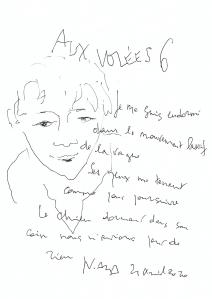 AUX VOLÉES 6
Je me suis endormi
dans le mouvement
de la vague
les yeux me tenant
comme pour poursuivre
Le chien dormait dans son
coin nous n'avions peur de
rien